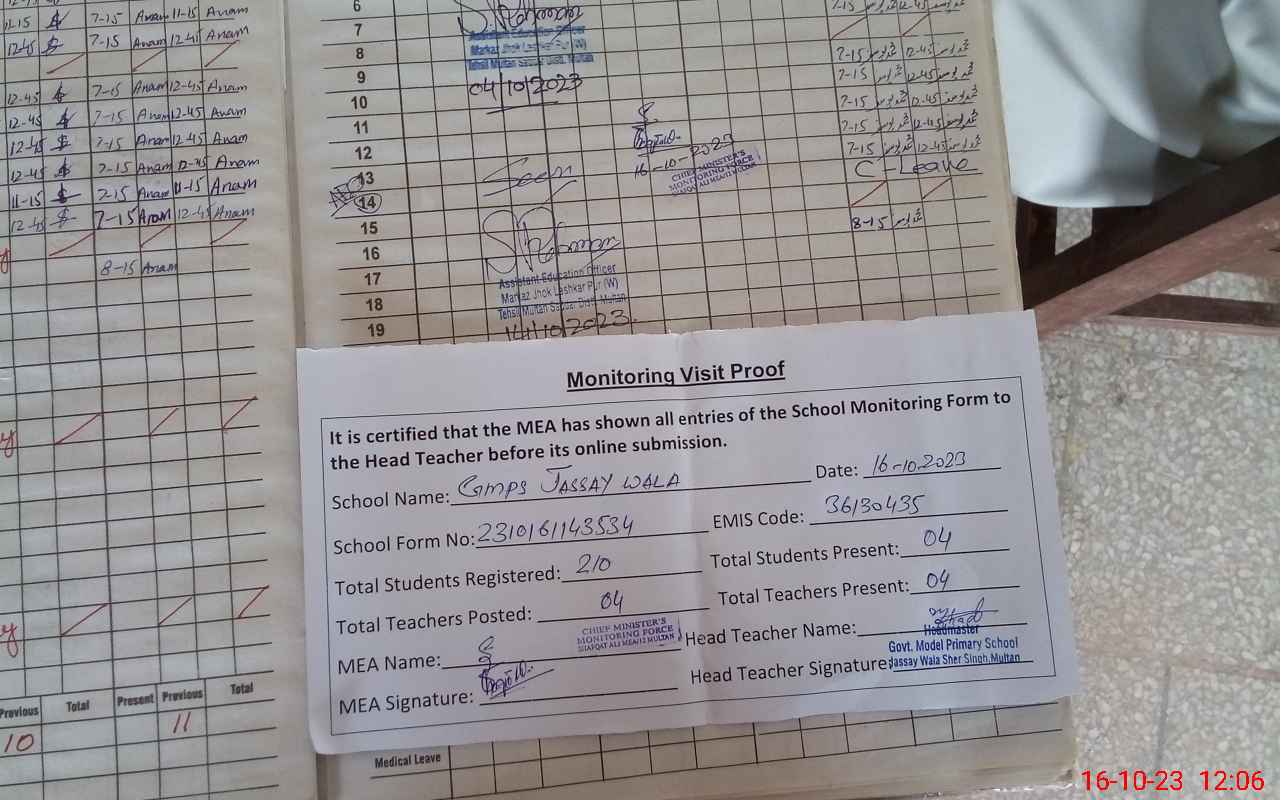 11-15 7-15 Anam 11-15 Anam
12-45 7-15 Anam 12-45 Anam
12-45 7-15 Anam 12-45 Anam
12-45 7-15 Anam 12-45 Anam
12-45 7-15 Anam 12-45 Anam
12-45 7-15 Anam 12-45 Anam
11-15 7-15 Anam 11-15 Anam
12-45 7-15 Anam 12-45 Anam
8-15 Anam
Previous Total Present Previous Total
10 11
6
7
8
9
10
11
12
13
14
15
16
17
18
19
Assistant Education Officer
Markaz Jhok Lashkar Pur (W)
Tehsil Multan Saddar Distt. Multan
04/10/2023
16-10-2023
CHIEF MINISTER'S
MONITORING FORCE
Seen
Assistant Education Officer
Markaz Jhok Lashkar Pur (W)
Tehsil Multan Saddar Distt. Multan
14/10/2023.
7-15 12-45
7-15 12-45
7-15 12-45
7-15 12-45
7-15 12-45
7-15 12-45
C-Leave
8-15
Monitoring Visit Proof
It is certified that the MEA has shown all entries of the School Monitoring Form to
the Head Teacher before its online submission.
School Name: GMPS JASSAY WALA Date: 16-10-2023
School Form No: 2310161143534 EMIS Code: 36130435
Total Students Registered: 210 Total Students Present: 04
Total Teachers Posted: 04 Total Teachers Present: 04
MEA Name: CHIEF MINISTER'S
MONITORING FORCE
Head Teacher Name: Headmaster
Govt. Model Primary School
Jassay Wala Sher Singh, Multan
MEA Signature: Head Teacher Signature:
Medical Leave
16-10-23 12:06